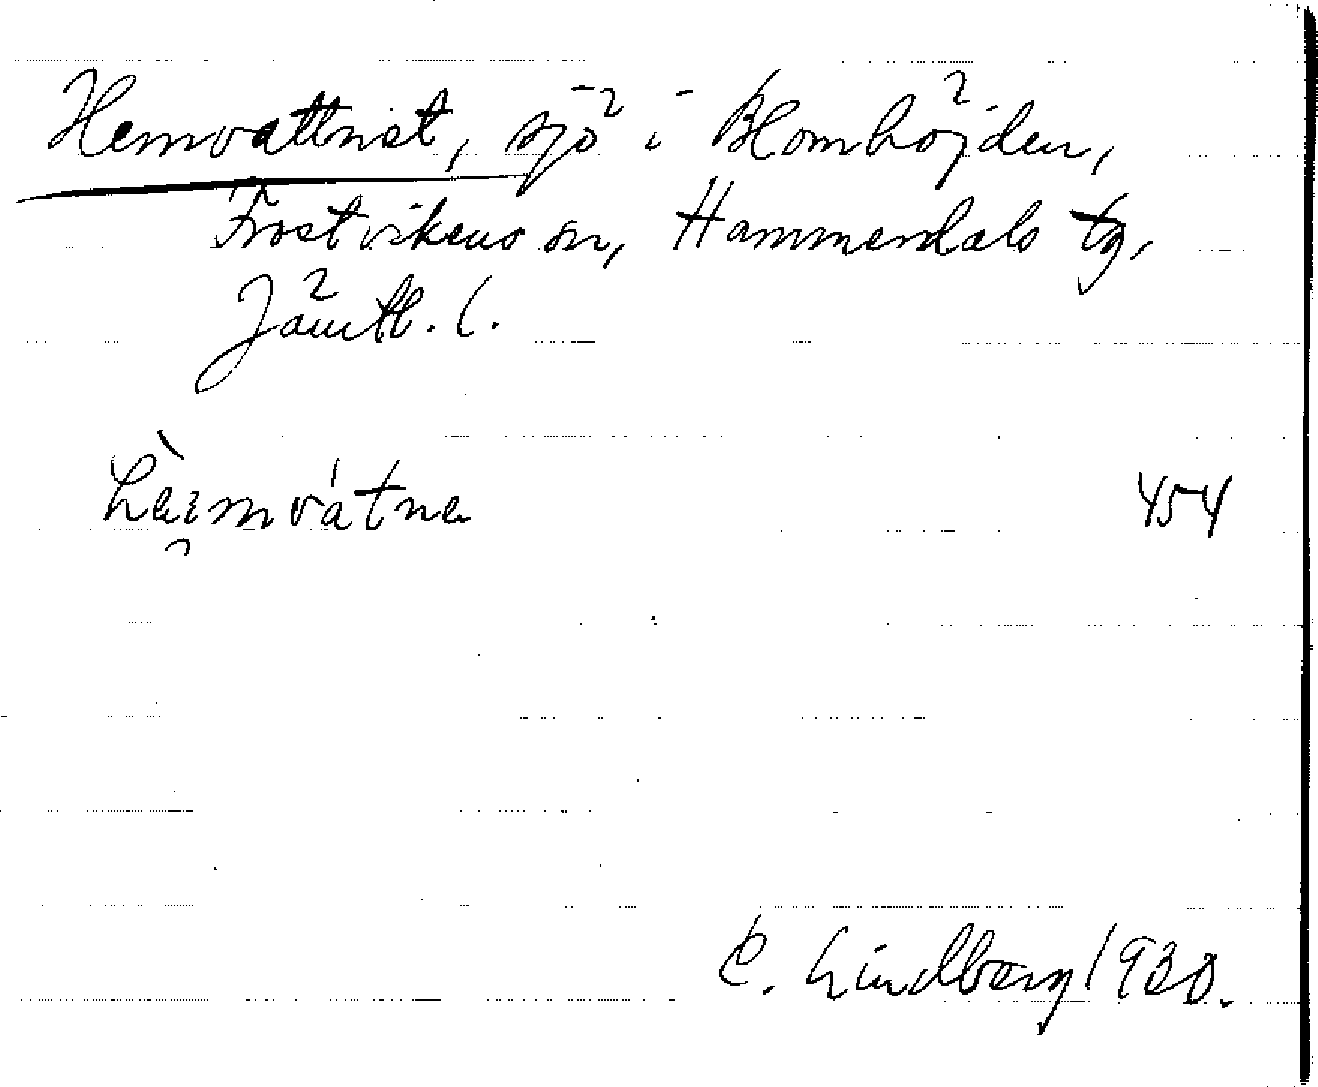 Hemvattnet, sjö i Blomhöjden,
Frostvikens sn, Hammerdals tg,
Jämtl. l.
454
C. Lindberg 1930.